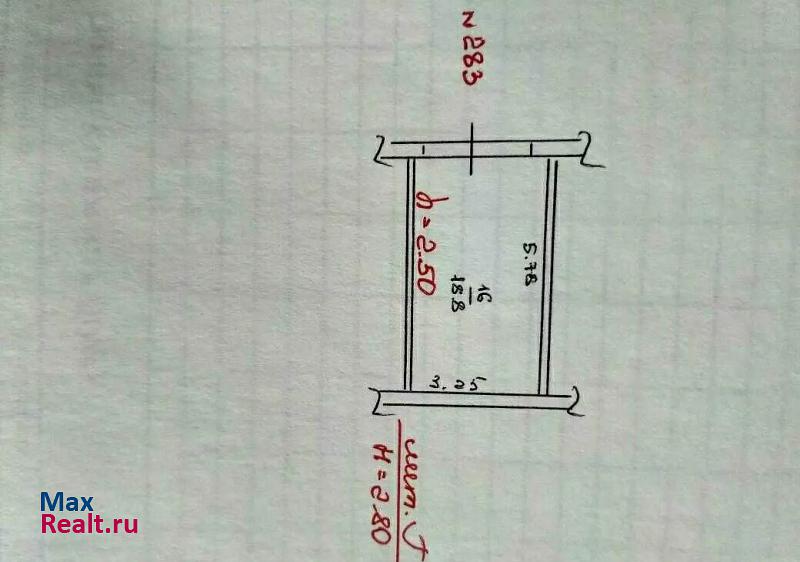 N 283
h = 2.50
5.78
16
18.8
3.25
лит. Г
H = 2.80
Max
Realt.ru